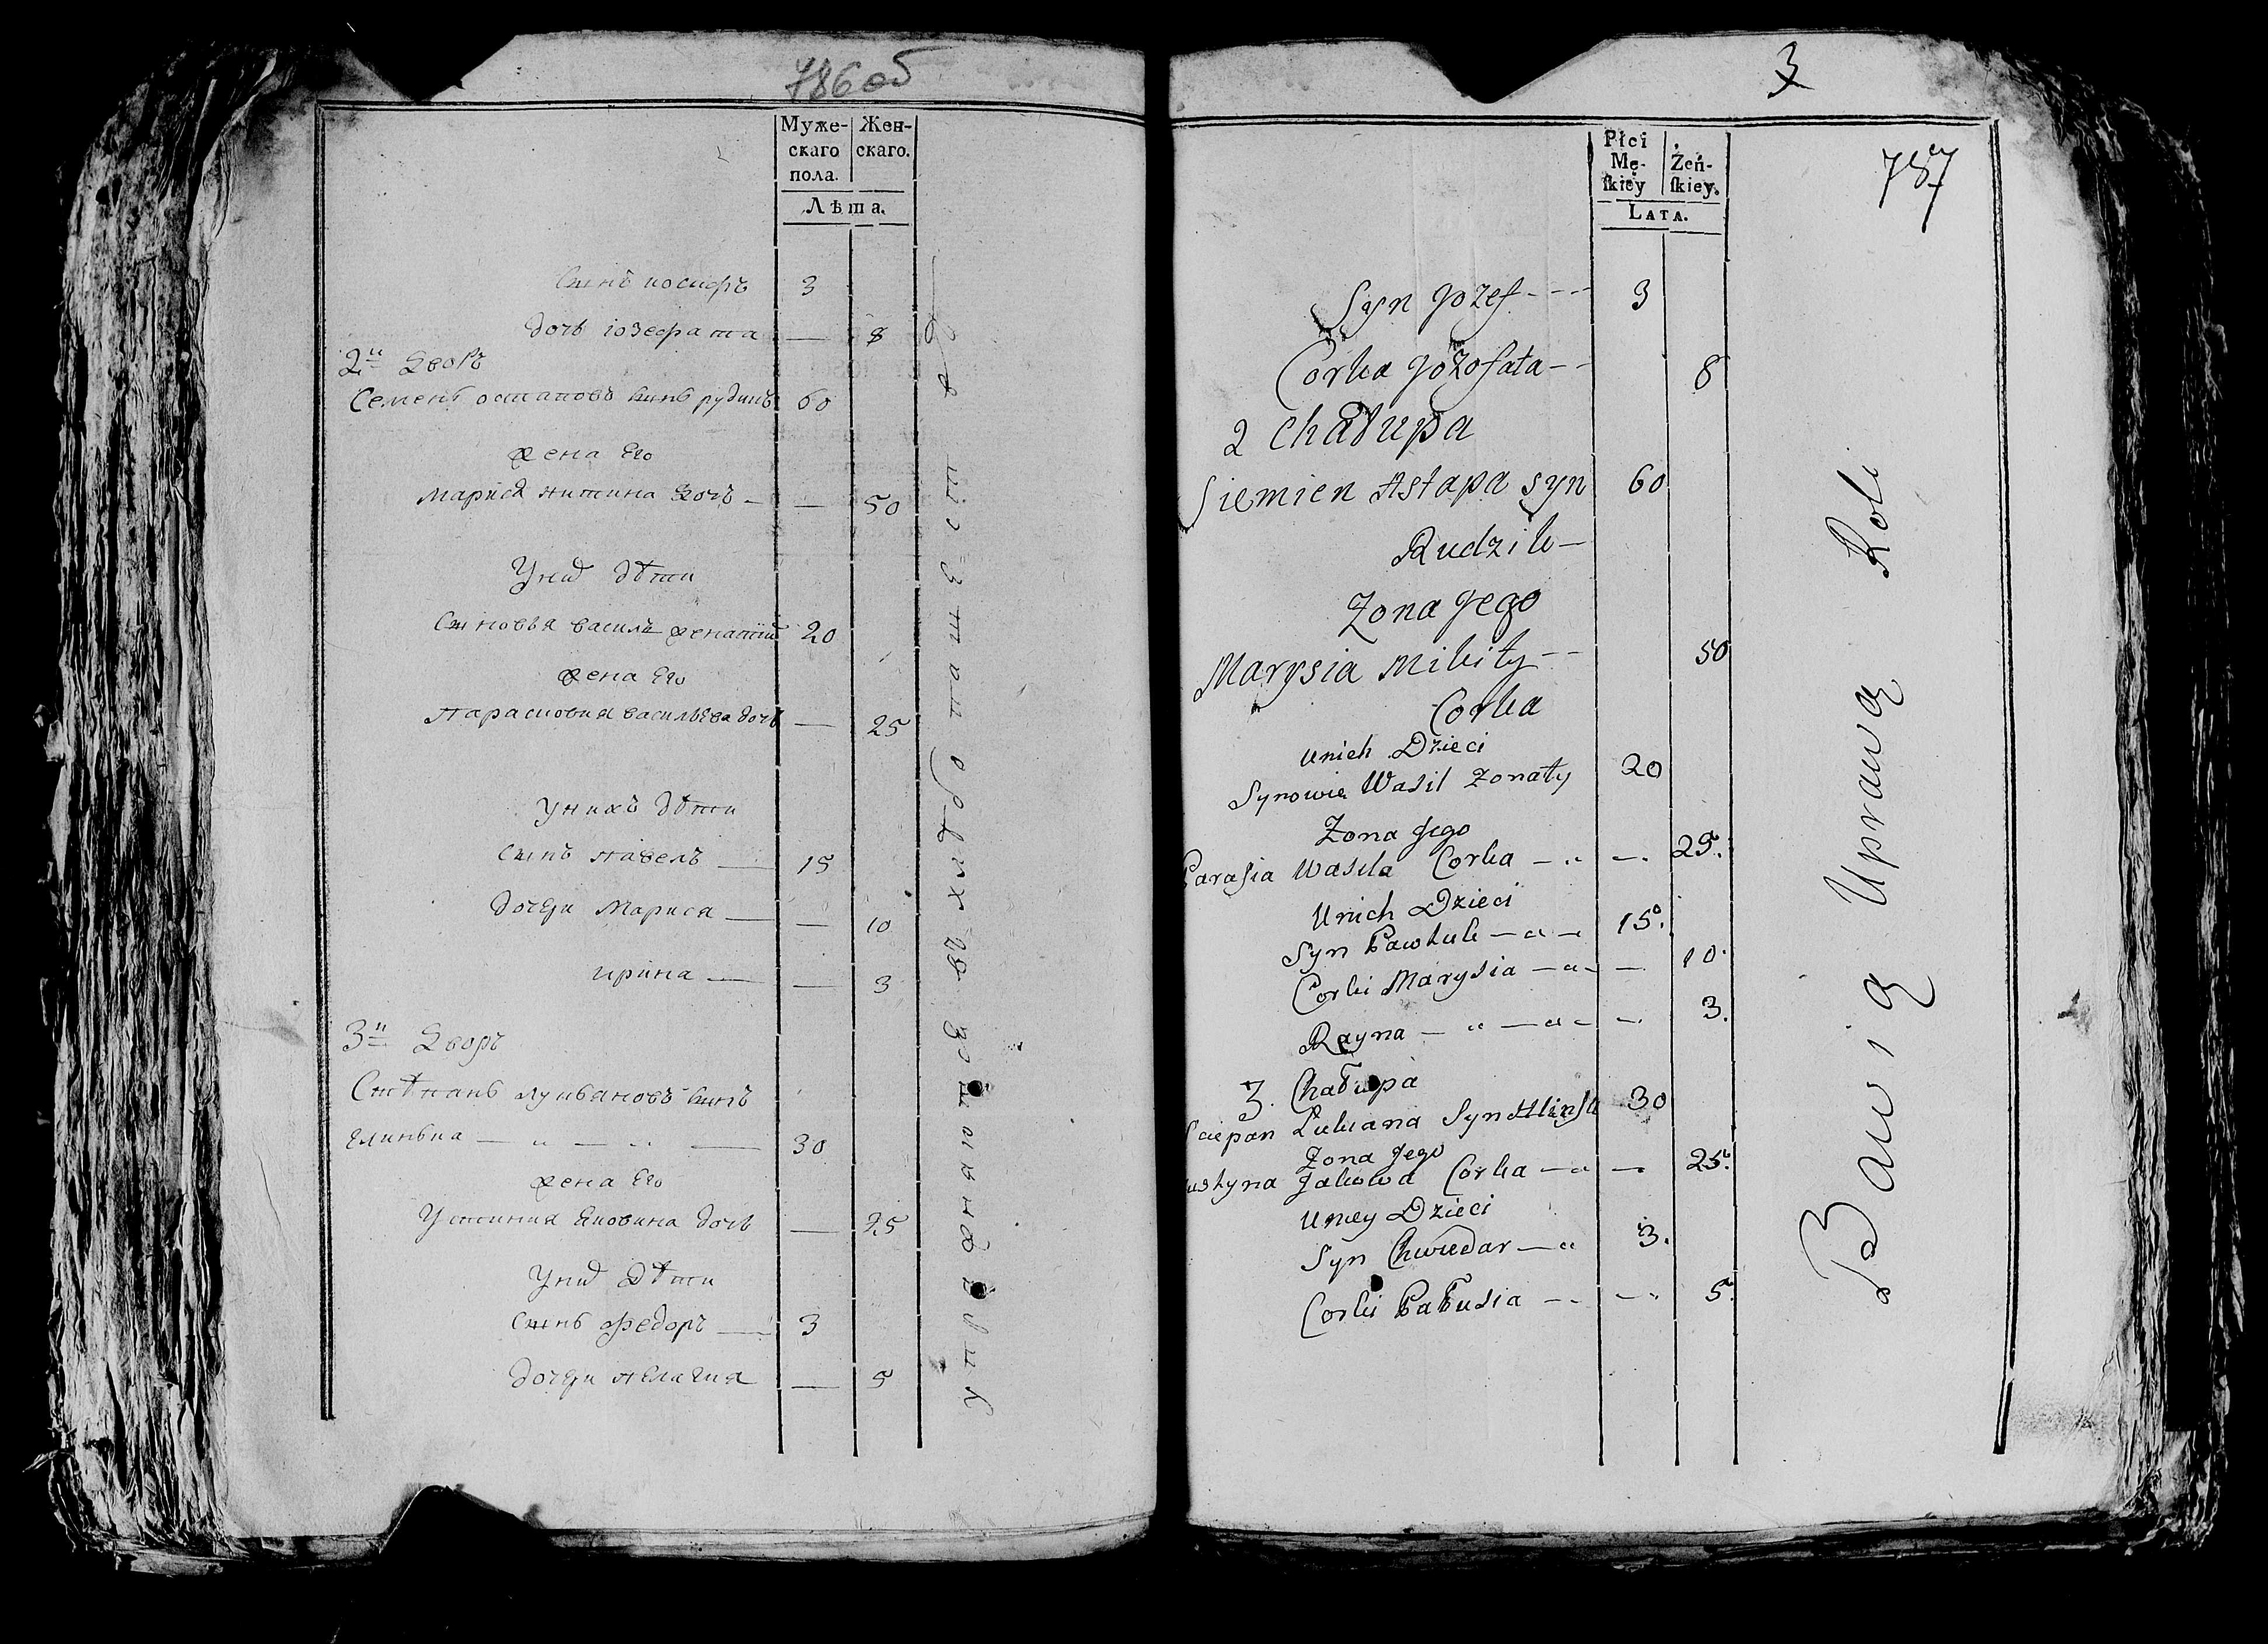 786об
Муже-
скаго
пола.
Жен-
скаго.
Лѣта.
Сынъ иосифъ 3
дочь іозефата — 8
2й Дворъ
Семенъ остаповъ сынъ рудикъ 60
жена Его
Марися никитина дочь — — 50
У них дѣти
Сыновья василь женатый 20
жена Его
Парасковия васильева дочь — 25
У нихъ дѣти
Сынъ павелъ — 15
дочери Марися — — 10
ирина — — 3
3й Дворъ
Степанъ лукьяновъ сынъ
— „ — „ — 30
жена Его
Устиния яковлева дочь — 25
У них Дѣти
Сынъ Федоръ — 3
дочери пелагия — 5
3
787
Płci
Mę-
ſkiey
Żeń-
ſkiey.
Lata.
Syn Jozef - - - 3
Corka Jozofata - - 8
2 Chałupa
Siemien Astapa syn 60
Rudzik —
Zona Jego
Marysia Mikity - - 50
Corka
Unich Dzieci
Synowie Wasil Zonaty 20
Zona Jego
Parasia Wasila Corka — „ — 25.
Unich Dzieci
Syn Pawluk — „ — 15.
Corki Marysia — „ — — 10.
Rayna — „ — „ — — 3.
3. Chałupa
Sciepan Lukiana Syn 30
Zona Jego
Jakowa Corka — „ — 25.
Uniey Dzieci
Syn Chwiedar — „ 3.
Corki Pałusia — - — 5.
Bawią Uprawą Roli